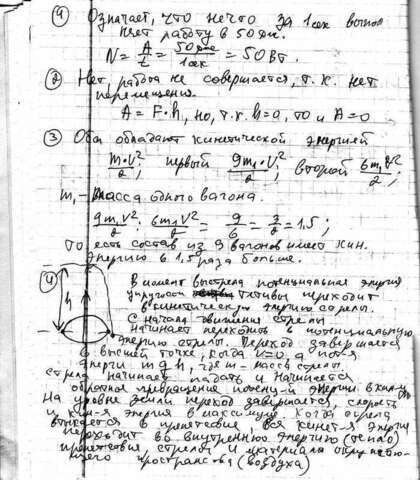 ① Означает, что нечто за 1 сек выпол
няет работу в 50 Дж.
N = A/t = 50 Дж/1 сек = 50 Вт.
② Нет, работа не совершается, т.к. нет
перемещения.
A = F·h, но, т.к. h=0, то и A=0
③ Оба обладают кинетической энергией
m·V²/2; первый 9m₁·V₁²/2; второй 6m₁V²/2;
m₁ - масса одного вагона.
9m₁V²/2 : 6m₁V²/2 = 9/6 = 3/2 = 1,5;
То есть состав из 9 вагонов имеет кин.
энергию в 1,5 раза больше.
④ В момент выстрела потенциальная энергия
h упругости тетивы переходит
в кинетическую энергию стрелы.
С начала движения стрелы
начинает переходить в потенциальную
энергию стрелы. Переход завершается
в высшей точке, когда V=0, а пот-я
энерги mgh, где m - масса стрелы.
стрела начинает падать и начинается
обратное превращение потенц-й энергии в кин-ю
На уровне земли переход завершается, скорость
и кин-я энергия в максимуме. Когда стрела
втыкается в препятствие вся кинет-я энерг
переходит во внутреннюю энергию (тепло)
препятствия стрелы и материала окружаю-
щего пространства (воздуха)